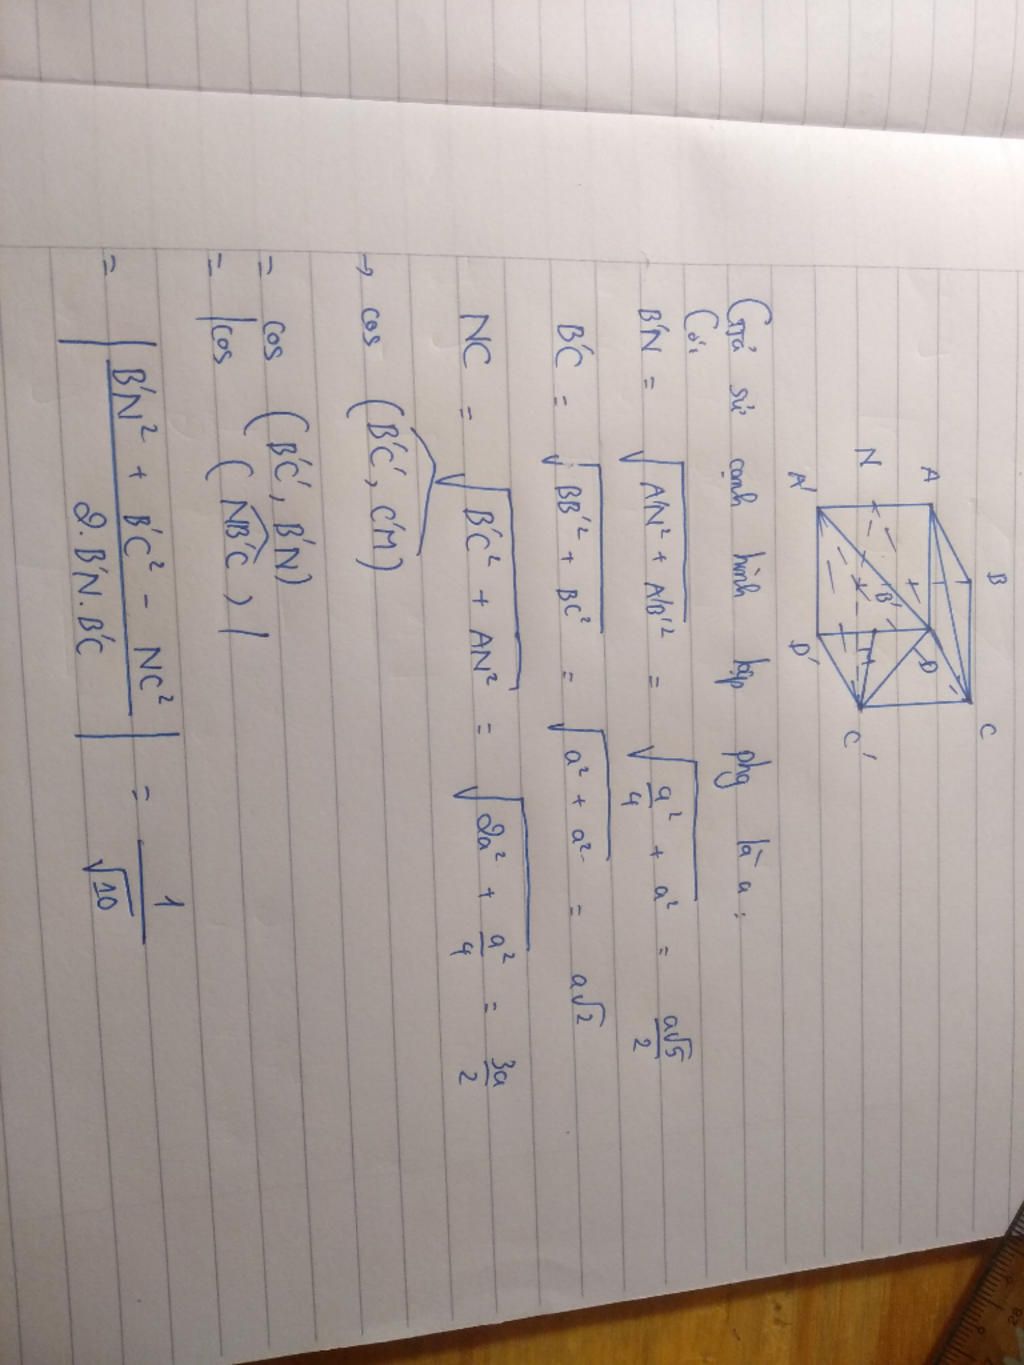 A B C
N B' D
M
A' D' C'
Giả sử cạnh hình lập phg là a:
Có:
B'N = √(A'N² + A'B'²) = √(a²/4 + a²) = a√5/2
B'C = √(BB'² + BC²) = √(a² + a²) = a√2
NC = √(B'C² + AN²) = √(2a² + a²/4) = 3a/2
→ cos (B'C', C'M)
= cos (B'C', B'N)
= |cos (NB'C)|
= |(B'N² + B'C² - NC²)/(2.B'N.B'C)| = 1/√10
28